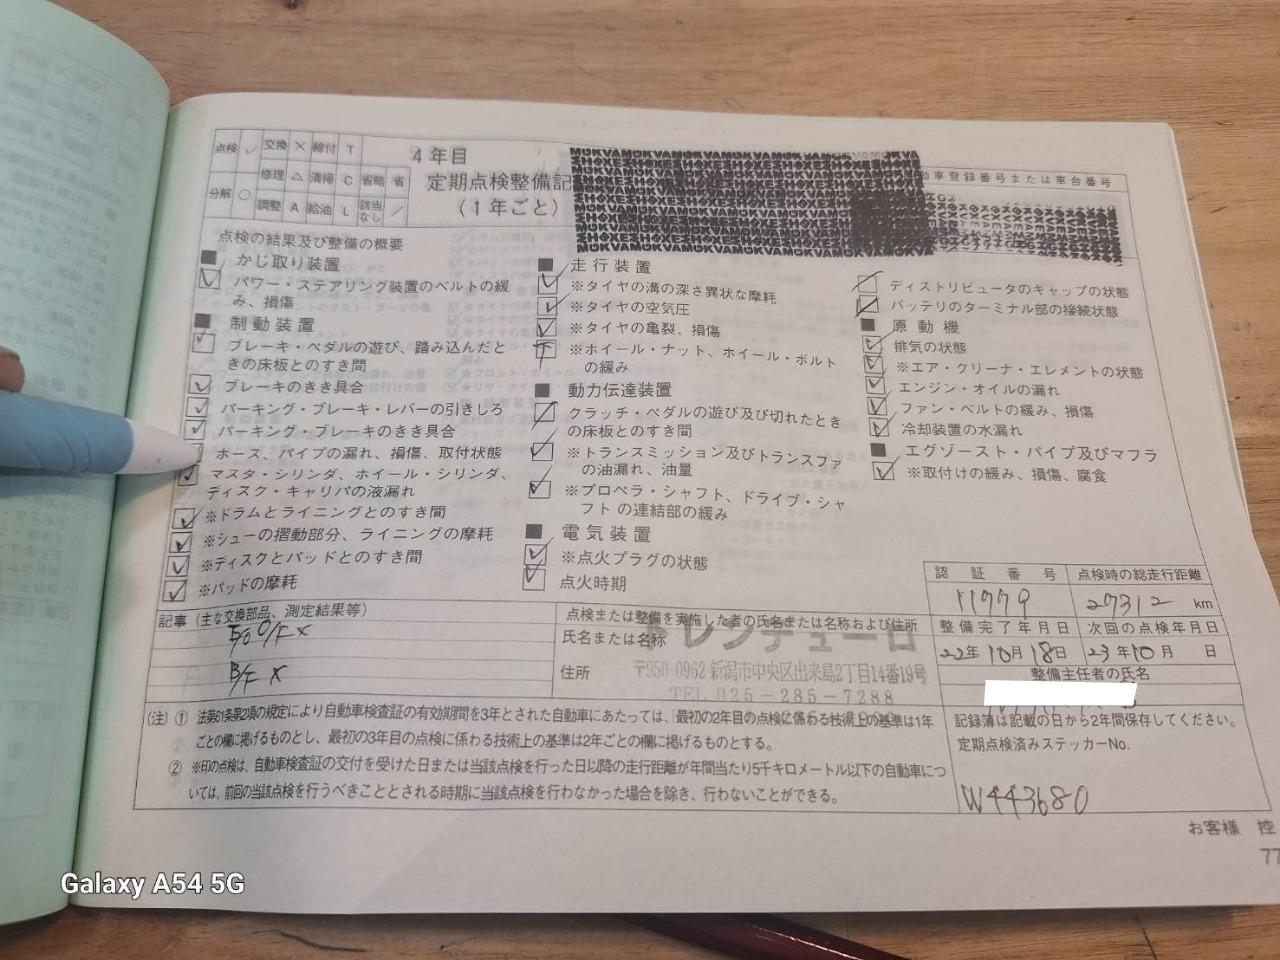 点検 ✓ 交換 × 締付 T
修理 △ 清掃 C 省略 省
分解 ○ 調整 A 給油 L 該当なし /
4年目
定期点検整備記
(1年ごと)
動車登録番号または車台番号
点検の結果及び整備の概要
■ かじ取り装置
パワー・ステアリング装置のベルトの緩
み、損傷
■ 制動装置
ブレーキ・ペダルの遊び、踏み込んだと
きの床板とのすき間
ブレーキのきき具合
パーキング・ブレーキ・レバーの引きしろ
パーキング・ブレーキのきき具合
ホース、パイプの漏れ、損傷、取付状態
マスタ・シリンダ、ホイール・シリンダ、
ディスク・キャリパの液漏れ
※ドラムとライニングとのすき間
※シューの摺動部分、ライニングの摩耗
※ディスクとパッドとのすき間
※パッドの摩耗
■ 走行装置
※タイヤの溝の深さ異状な摩耗
※タイヤの空気圧
※タイヤの亀裂、損傷
※ホイール・ナット、ホイール・ボルト
の緩み
■ 動力伝達装置
クラッチ・ペダルの遊び及び切れたとき
の床板とのすき間
※トランスミッション及びトランスファ
の油漏れ、油量
※プロペラ・シャフト、ドライブ・シャ
フトの連結部の緩み
■ 電気装置
※点火プラグの状態
点火時期
ディストリビュータのキャップの状態
バッテリのターミナル部の接続状態
■ 原動機
排気の状態
※エア・クリーナ・エレメントの状態
エンジン・オイルの漏れ
ファン・ベルトの緩み、損傷
冷却装置の水漏れ
■ エグゾースト・パイプ及びマフラ
※取付けの緩み、損傷、腐食
記事(主な交換部品、測定結果等)
E/O O/F ×
B/F ×
点検または整備を実施した者の氏名または名称および住所
氏名または名称
トレンチューロ
住所
〒950-0962 新潟市中央区出来島2丁目14番19号
TEL 025-285-7288
認証番号 点検時の総走行距離
11779 27312 km
整備完了年月日 次回の点検年月日
22年10月18日 23年10月 日
整備主任者の氏名
(注) ① 法第61条第2項の規定により自動車検査証の有効期間を3年とされた自動車にあたっては、最初の2年目の点検に係わる技術上の基準は1年
ごとの欄に掲げるものとし、最初の3年目の点検に係わる技術上の基準は2年ごとの欄に掲げるものとする。
② ※印の点検は、自動車検査証の交付を受けた日または当該点検を行った日以降の走行距離が年間当たり5千キロメートル以下の自動車につ
いては、前回の当該点検を行うべきこととされる時期に当該点検を行わなかった場合を除き、行わないことができる。
記録簿は記載の日から2年間保存してください。
定期点検済みステッカーNo.
W443680
お客様 控
77
Galaxy A54 5G